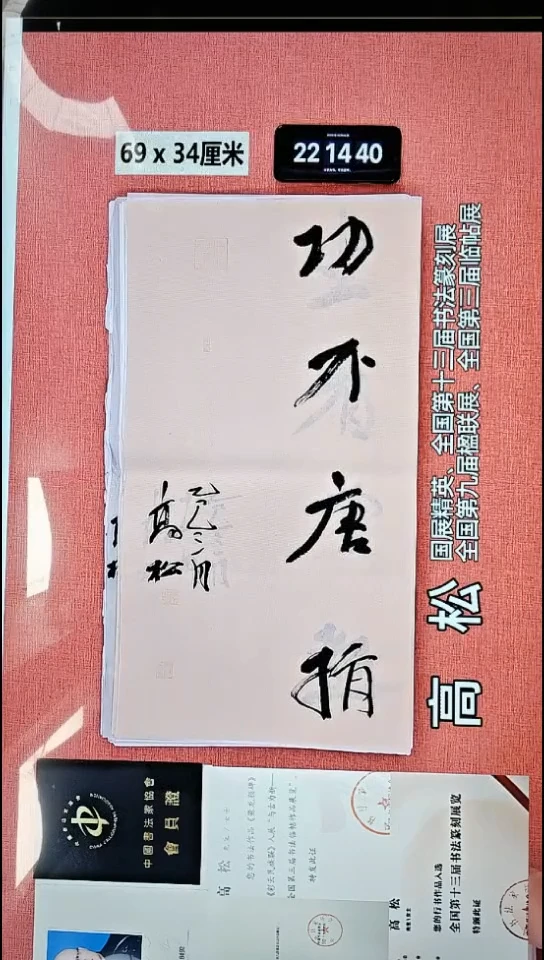 69 x 34厘米
22 14 40
功不唐捐
乙巳二月
高松
高松
国展精英、全国第十三届书法篆刻展
全国第九届楹联展、全国第三届临帖展
中國書法家協會
會員證
高 松
全国第三届书法临帖作品展览
特发此证
高 松
您的行书作品入选
全国第十三届书法篆刻展览
特颁此证